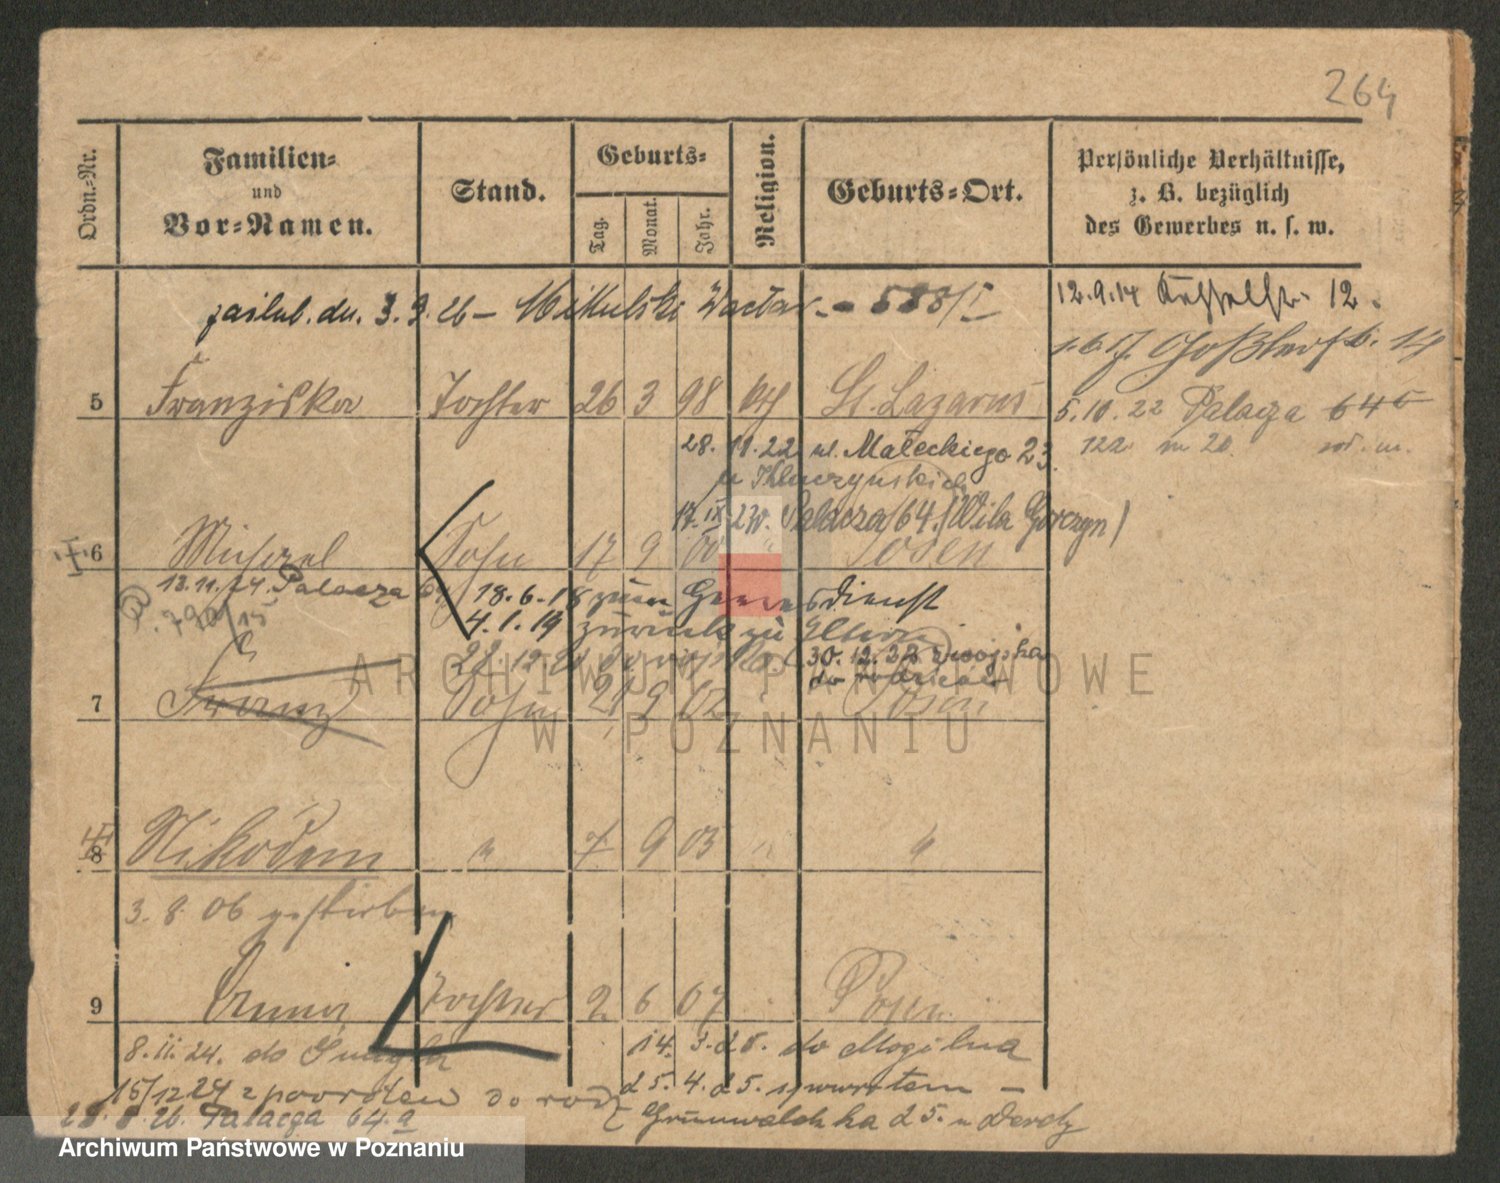 264
Ordn.=Nr.
Familien=
und
Vor=Namen.
Stand.
Geburts=
Tag.
Monat.
Jahr.
Religion.
Geburts=Ort.
Persönliche Verhältnisse,
z. B. bezüglich
des Gewerbes u. s. w.
zaślub. dn. 3. 9. 26 – Mikulski Wacław – 588/I
12.9.14 12.
Goßlerstr. 14
5 Franziska Tochter 26 3 98 kth St. Lazarus
5.10.22 Palacza 64
122 m 20.
28. 11. 22 ul. Małeckiego 23
17. IX 23 Palacza 64 (Wila Gorczyn)
6 Michael Sohn 17 9 00 " Posen
13.11.24. Palacza
18.6.18 zum Heeresdienst
4.1.19 zurück zu Eltern
30. 12. 22 z wojska
do rodziców
7 Franz Sohn 21 9 02 Posen
8 Nikodem " 7 9 03 " "
3. 8. 06 gestorben
9 Anna Tochter 2 6 07 Posen
8. 11. 24. do Śmigla
14. 3. 25. do Mogilna
15/12 24 z powrotem do rodz
25. 4. 25. z powrotem –
28. 8. 26. Palacza 64.a
Grunwaldzka 25.
ARCHIWUM PAŃSTWOWE
W POZNANIU
Archiwum Państwowe w Poznaniu